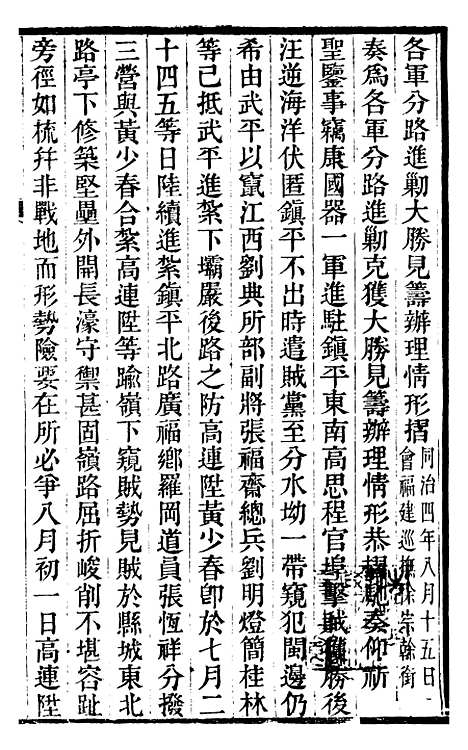 各軍分路進勦大勝見籌辦理情形摺同治四年八月十五日會福建巡撫徐宗榦銜
奏為各軍分路進勦克獲大勝見籌辦理情形恭摺馳奏仰祈
聖鑒事竊康國器一軍進駐鎮平東南高思程官埠擊賊獲勝後
汪逆海洋伏匿鎮平不出時遣賊黨至分水坳一帶窺犯閩邊仍
希由武平以竄江西劉典所部副將張福齋總兵劉明燈簡桂林
等已抵武平進紮下壩嚴後路之防高連陞黃少春卽於七月二
十四五等日陸續進紮鎮平北路廣福鄉羅岡道員張恆祥分撥
三營與黃少春合紮高連陞等踰嶺下窺賊勢見賊於縣城東北
路亭下修築堅壘外開長濠守禦甚固嶺路屈折峻削不堪容趾
旁徑如梳幷非戰地而形勢險要在所必爭八月初一日高連陞